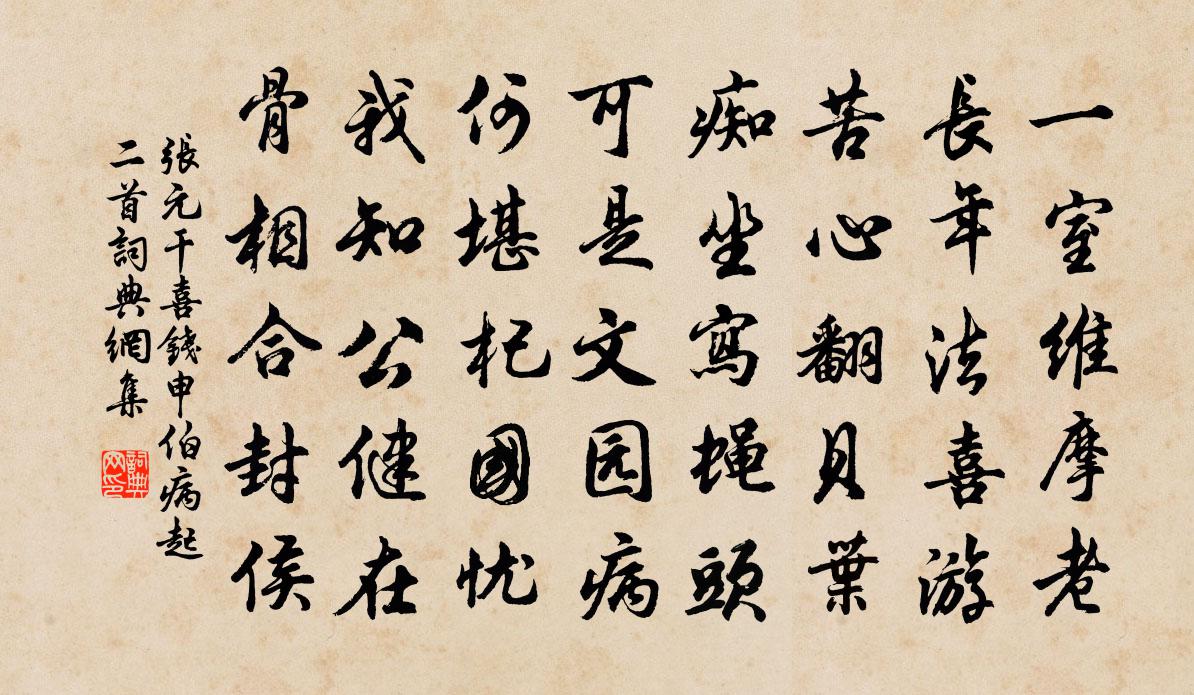 一室维摩老
長年法喜游
苦心翻貝葉
痴坐寫蝇頭
可是文园病
何堪杞國忧
我知公健在
骨相合封侯
張元干喜錢申伯病起
二首詞典網集
詞典
网印